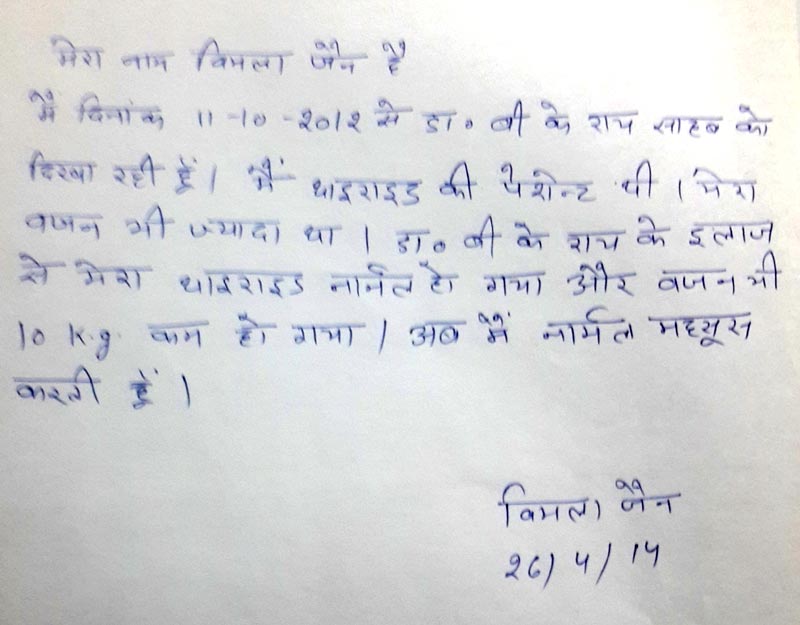 मेरा नाम विमला जैन है
मैं दिनांक 11-10-2012 से डा० बी के राय साहब को
दिखा रही हूँ। मैं थाइराइड की पेशेन्ट थी। मेरा
वजन भी ज्यादा था। डा० बी के राय के इलाज
से मेरा थाइराइड नार्मल हो गया और वजन भी
10 k.g. कम हो गया। अब मैं नार्मल महसूस
करती हूँ।
विमला जैन
26/4/14